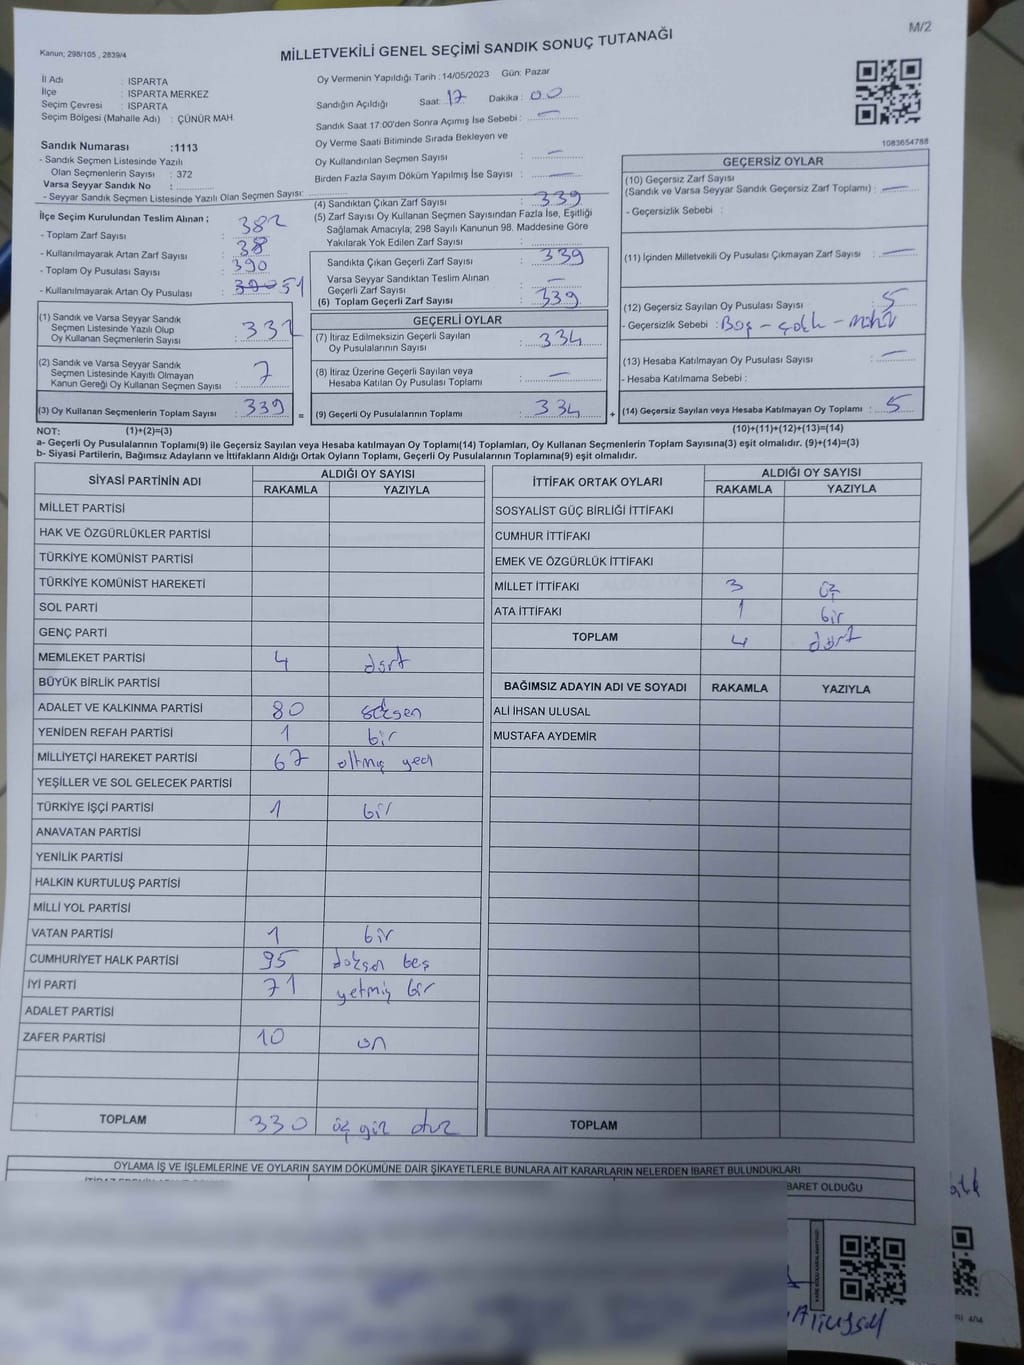 M/2
Kanun; 298/105 , 2839/4
MİLLETVEKİLİ GENEL SEÇİMİ SANDIK SONUÇ TUTANAĞI
İl Adı : ISPARTA
İlçe : ISPARTA MERKEZ
Seçim Çevresi : ISPARTA
Seçim Bölgesi (Mahalle Adı) : ÇÜNÜR MAH.
Sandık Numarası :1113
- Sandık Seçmen Listesinde Yazılı
Olan Seçmenlerin Sayısı : 372
Varsa Seyyar Sandık No :
- Seyyar Seçmen Listesinde Yazılı Olan Seçmen Sayısı:
Oy Vermenin Yapıldığı Tarih :14/05/2023 Gün: Pazar
Sandığın Açıldığı Saat: 17 Dakika : 00
Sandık Saat 17:00'den Sonra Açımış İse Sebebi : —
Oy Verme Saati Bitiminde Sırada Bekleyen ve
Oy Kullandırılan Seçmen Sayısı : —
Birden Fazla Sayım Döküm Yapılmış İse Sayısı : —
1083654788
İlçe Seçim Kurulundan Teslim Alınan ;
- Toplam Zarf Sayısı : 382
- Kullanılmayarak Artan Zarf Sayısı : 38
- Toplam Oy Pusulası Sayısı : 390
- Kullanılmayarak Artan Oy Pusulası : 51
(1) Sandık ve Varsa Seyyar Sandık
Seçmen Listesinde Yazılı Olup
Oy Kullanan Seçmenlerin Sayısı : 332
(2) Sandık ve Varsa Seyyar Sandık
Seçmen Listesinde Kayıtlı Olmayan
Kanun Gereği Oy Kullanan Seçmen Sayısı : 7
(3) Oy Kullanan Seçmenlerin Toplam Sayısı : 339 =
(4) Sandıktan Çıkan Zarf Sayısı : 339
(5) Zarf Sayısı Oy Kullanan Seçmen Sayısından Fazla İse, Eşitliği
Sağlamak Amacıyla; 298 Sayılı Kanunun 98. Maddesine Göre
Yakılarak Yok Edilen Zarf Sayısı :
Sandıkta Çıkan Geçerli Zarf Sayısı : 339
Varsa Seyyar Sandıktan Teslim Alınan
Geçerli Zarf Sayısı : —
(6) Toplam Geçerli Zarf Sayısı : 339
GEÇERLİ OYLAR
(7) İtiraz Edilmeksizin Geçerli Sayılan
Oy Pusulalarının Sayısı : 334
(8) İtiraz Üzerine Geçerli Sayılan veya
Hesaba Katılan Oy Pusulası Toplamı : —
(9) Geçerli Oy Pusulalarının Toplamı : 334 +
GEÇERSİZ OYLAR
(10) Geçersiz Zarf Sayısı
(Sandık ve Varsa Seyyar Sandık Geçersiz Zarf Toplamı) : —
- Geçersizlik Sebebi :
(11) İçinden Milletvekili Oy Pusulası Çıkmayan Zarf Sayısı : —
(12) Geçersiz Sayılan Oy Pusulası Sayısı : 5
- Geçersizlik Sebebi : Boş - çoklu - mühür
(13) Hesaba Katılmayan Oy Pusulası Sayısı : —
- Hesaba Katılmama Sebebi :
(14) Geçersiz Sayılan veya Hesaba Katılmayan Oy Toplamı : 5
NOT: (1)+(2)=(3) (10)+(11)+(12)+(13)=(14)
a- Geçerli Oy Pusulalarının Toplamı(9) ile Geçersiz Sayılan veya Hesaba katılmayan Oy Toplamı(14) Toplamları, Oy Kullanan Seçmenlerin Toplam Sayısına(3) eşit olmalıdır. (9)+(14)=(3)
b- Siyasi Partilerin, Bağımsız Adayların ve İttifakların Aldığı Ortak Oyların Toplamı, Geçerli Oy Pusulalarının Toplamına(9) eşit olmalıdır.
SİYASİ PARTİNİN ADI ALDIĞI OY SAYISI
RAKAMLA YAZIYLA
MİLLET PARTİSİ
HAK VE ÖZGÜRLÜKLER PARTİSİ
TÜRKİYE KOMÜNİST PARTİSİ
TÜRKİYE KOMÜNİST HAREKETİ
SOL PARTİ
GENÇ PARTİ
MEMLEKET PARTİSİ 4 dört
BÜYÜK BİRLİK PARTİSİ
ADALET VE KALKINMA PARTİSİ 80 seksen
YENİDEN REFAH PARTİSİ 1 bir
MİLLİYETÇİ HAREKET PARTİSİ 67 altmış yedi
YEŞİLLER VE SOL GELECEK PARTİSİ
TÜRKİYE İŞÇİ PARTİSİ 1 bir
ANAVATAN PARTİSİ
YENİLİK PARTİSİ
HALKIN KURTULUŞ PARTİSİ
MİLLİ YOL PARTİSİ
VATAN PARTİSİ 1 bir
CUMHURİYET HALK PARTİSİ 95 doksan beş
İYİ PARTİ 71 yetmiş bir
ADALET PARTİSİ
ZAFER PARTİSİ 10 on
TOPLAM 330 üç yüz otuz
İTTİFAK ORTAK OYLARI ALDIĞI OY SAYISI
RAKAMLA YAZIYLA
SOSYALİST GÜÇ BİRLİĞİ İTTİFAKI
CUMHUR İTTİFAKI
EMEK VE ÖZGÜRLÜK İTTİFAKI
MİLLET İTTİFAKI 3 üç
ATA İTTİFAKI 1 bir
TOPLAM 4 dört
BAĞIMSIZ ADAYIN ADI VE SOYADI RAKAMLA YAZIYLA
ALİ İHSAN ULUSAL
MUSTAFA AYDEMİR
TOPLAM
OYLAMA İŞ VE İŞLEMLERİNE VE OYLARIN SAYIM DÖKÜMÜNE DAİR ŞİKAYETLERLE BUNLARA AİT KARARLARIN NELERDEN İBARET BULUNDUKLARI
BARET OLDUĞU